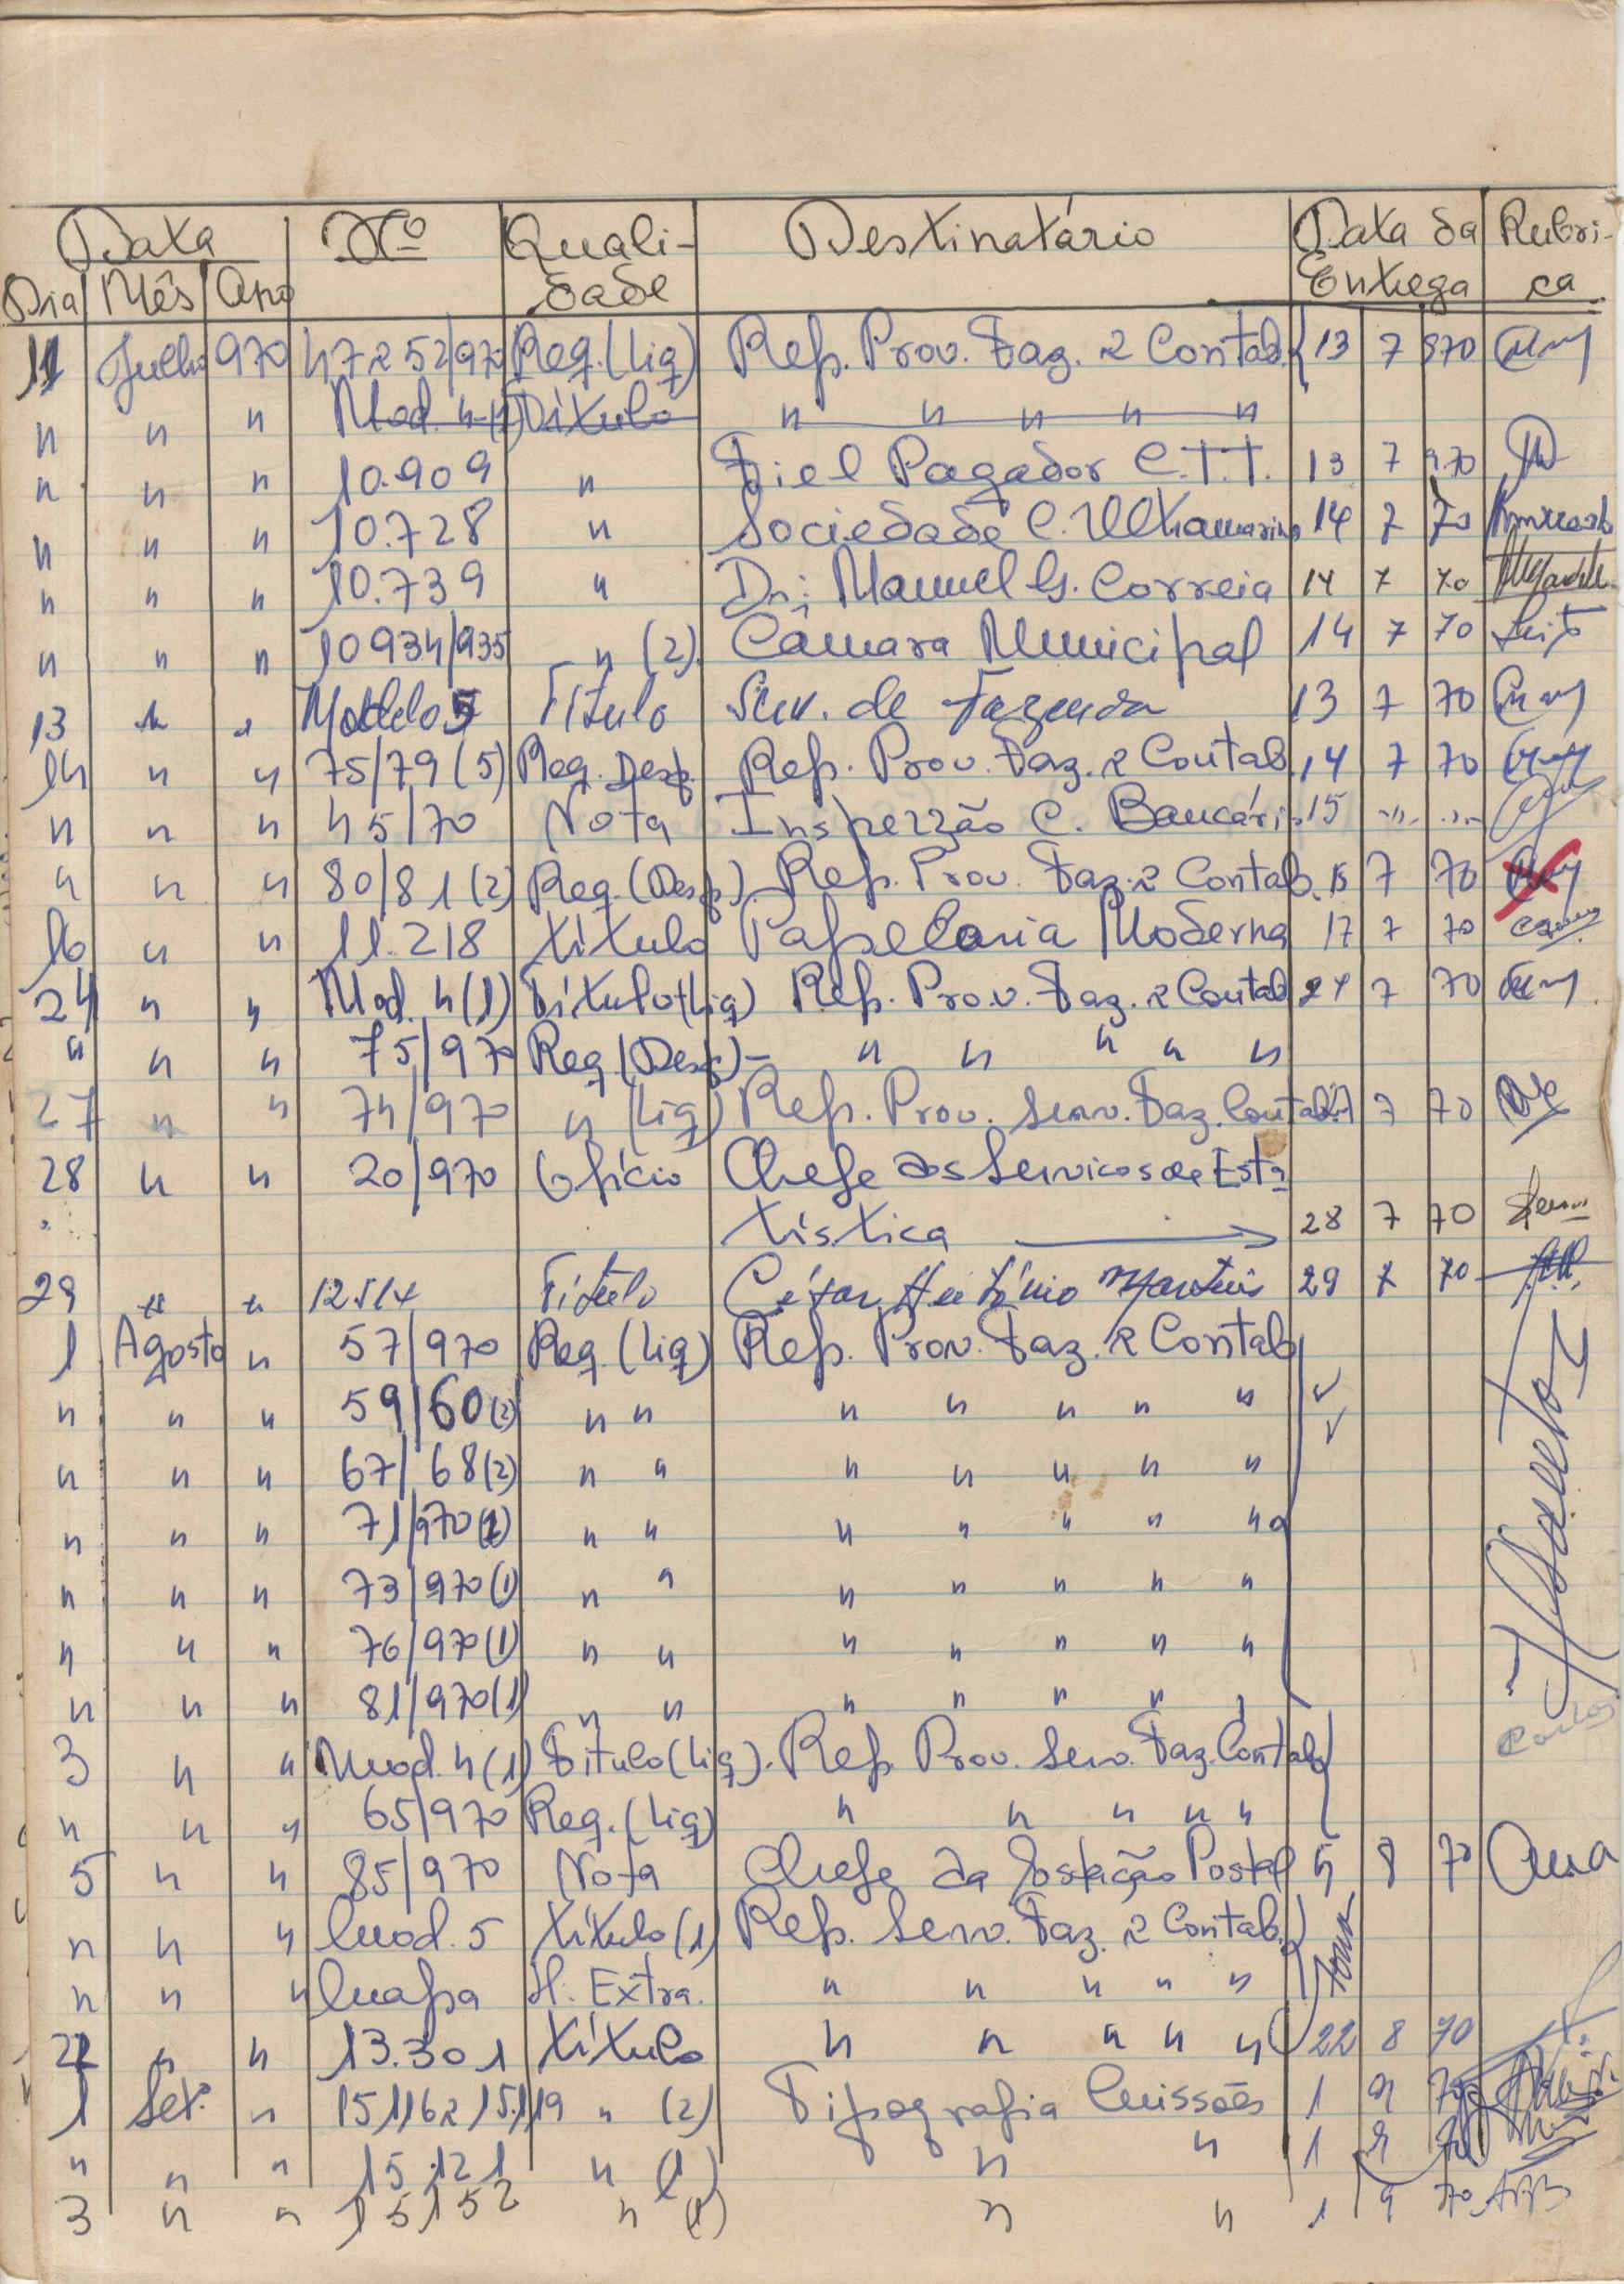 Data Nº Quali- Destinatário Data da Rubri-
Dia Mês Ano dade Entrega ca
11 Julho 970 47 e 52/970 Req. (Liq) Rep. Prov. Faz. e Contab. 13 7 970
" " " Mod. 4 (1) Título " " " " "
" " " 10.909 " Fiel Pagador C.T.T. 13 7 970
" " " 10.728 " Sociedade C. Ultramarino 14 7 70
" " " 10.739 " Dr. Manuel G. Correia 14 7 70
" " " 10934/935 " (2) Câmara Municipal 14 7 70
13 " " Modelo 5 Título Serv. de Fazenda 13 7 70
14 " " 75/79 (5) Req. Desp. Rep. Prov. Faz. e Contab. 14 7 70
" " " 45/70 Nota Inspecção C. Bancári 15 " "
" " " 80/81 (2) Req. (Desp.) Rep. Prov. Faz. e Contab. 15 7 70
16 " " 11.218 título Papelaria Moderna 17 7 70
24 " " Mod. 4 (1) Título (Liq) Rep. Prov. Faz. e Contab 24 7 70
" " " 75/970 Req (Desp) - " " " " "
27 " " 74/970 " (Liq) Rep. Prov. Serv. Faz. Contab. 27 7 70
28 " " 20/970 Ofício Chefe dos Serviços de Esta
tística 28 7 70
29 " " 12514 Título César António Martins 29 7 70
1 Agosto " 57/970 Req. (Liq) Rep. Prov. Faz. e Contab
" " " 59/60 (2) " " " " " " "
" " " 67/68 (2) " " " " " " "
" " " 71/970 (1) " " " " " " "
" " " 73/970 (1) " " " " " " "
" " " 76/970 (1) " " " " " " "
" " " 81/970 (1) " " " " " " "
3 " " Mod. 4 (1) Título (Liq). Rep. Prov. Serv. Faz. Contab Carlos
" " " 65/970 Req. (Liq) " " " " "
5 " " 85/970 Nota Chefe da Estação Postal 5 8 70 Ana
" " " Mod. 5 título (1) Rep. Serv. Faz. e Contab.
" " " Mapa H. Extra. " " " " "
22 " " 13.301 título " " " " " 22 8 70
1 Set. " 15.116 e 15.119 " (2) Tipografia Missões 1 9 70
" " " 15.121 " (1) " " 1 9 70
3 " " 15152 " (1) " " 1 9 70